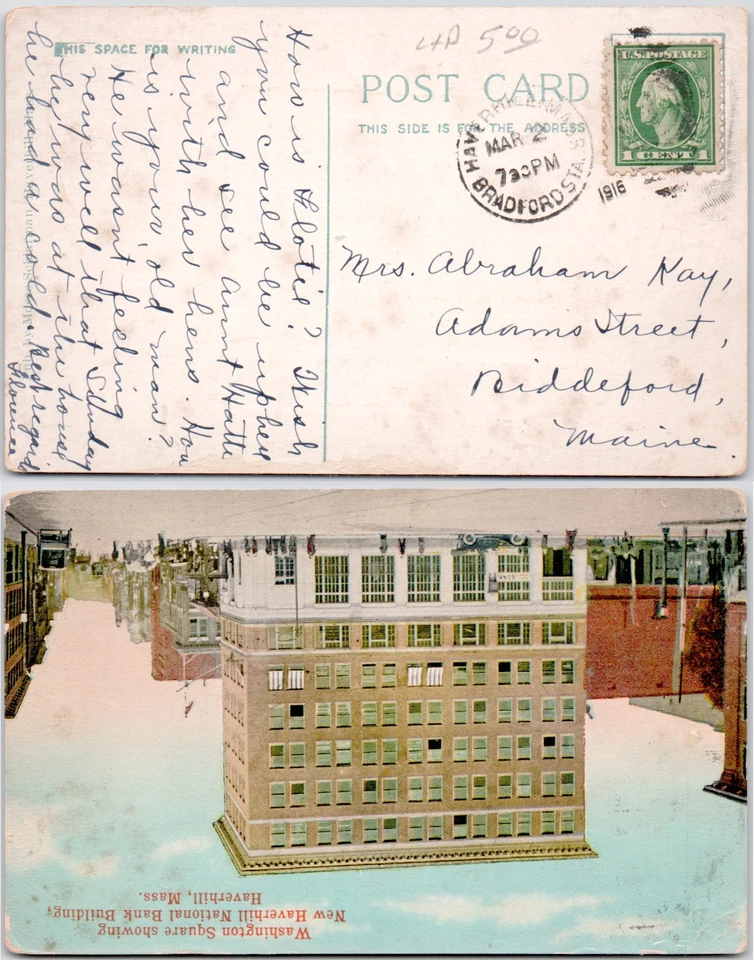 THIS SPACE FOR WRITING
How is Flotie? Wish
you could be up here
and see Aunt Hatti
with her hens. How
is your old man?
He wasn't feeling
very well that Sunday
he was at the house
he had a cold. Best regards
Florence
LHP 5.00
POST CARD
THIS SIDE IS FOR THE ADDRESS
U.S. POSTAGE
1 CENT 1
HAVERHILL, MASS.
MAR 2
7 30 PM
1916
BRADFORD STA.
Mrs. Abraham Kay,
Adams Street,
Biddeford,
Maine.
Washington Square showing
New Haverhill National Bank Building,
Haverhill, Mass.